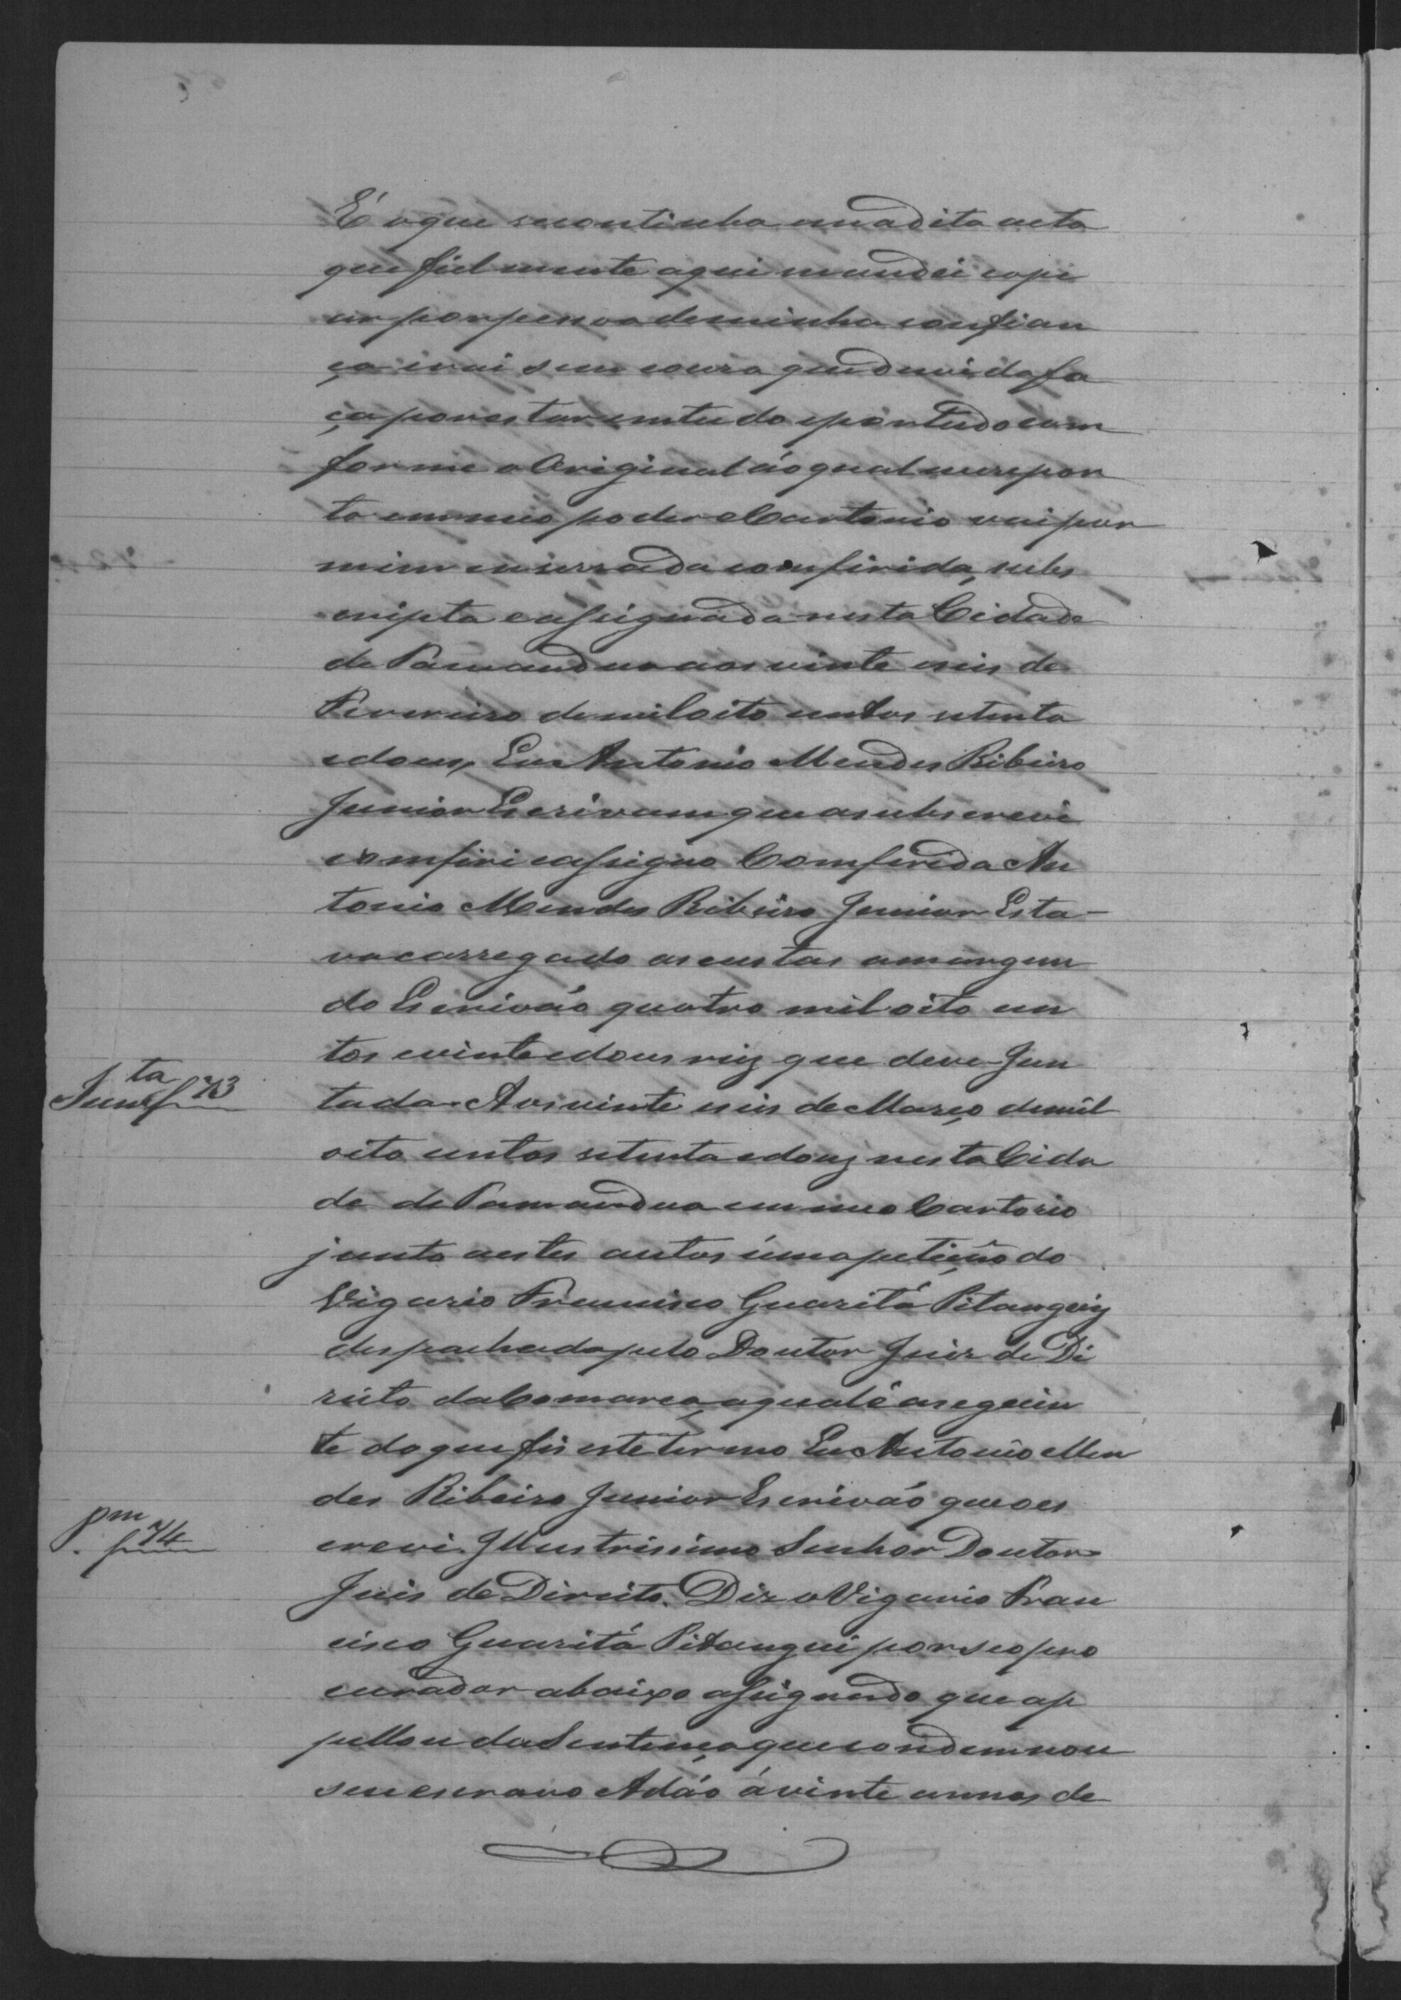 É o que se continha em a dita acta
que fiel mente aqui mandei copi
ar por pessoa de minha confian
ça e vai sem cousa que duvida fa
ça por estar em tudo e por tudo com
forme o Original áo qual me repor
to em meo poder e Cartorio vai por
mim encerrada comferida, subs
cripta e assignada nesta Cidade
de Tamanduá aos vinte e seis de
Fevereiro de mil oito centos setenta
e dous, Eu Antonio Mendes Ribeiro
Junior Escrivam que a subscrevi
comferi e assigno Comferida An
tonio Mendes Ribeiro Junior Esta-
va carregado as custas a margem
do Escriváo quatro mil oito cen
tos e vinte e dous reiz que deve Jun
Junta f 73
tada. Aos vinte e seis de Março de mil
oito centos setenta e douz nesta Cida
de de Tamandua em meo Cartorio
junto a estes autos úma petição do
Vigario Francisco Guaritá Pitanguy
despachada pelo Doutor Juiz de Di
reito da Comarca, a qual é a seguin
te do que fis este termo Eu Antonio Men
des Ribeiro Junior Escriváo que o es
pm f 74
crevi. Illustrissimo Senhor Doutor
Juis de Direito. Diz o Vigario Fran
cisco Guaritá Pitangui por seo pro
curador abaixo assignado que ap
pellou da Sentença que condemnou
seu escravo Adáo á vinte annos de